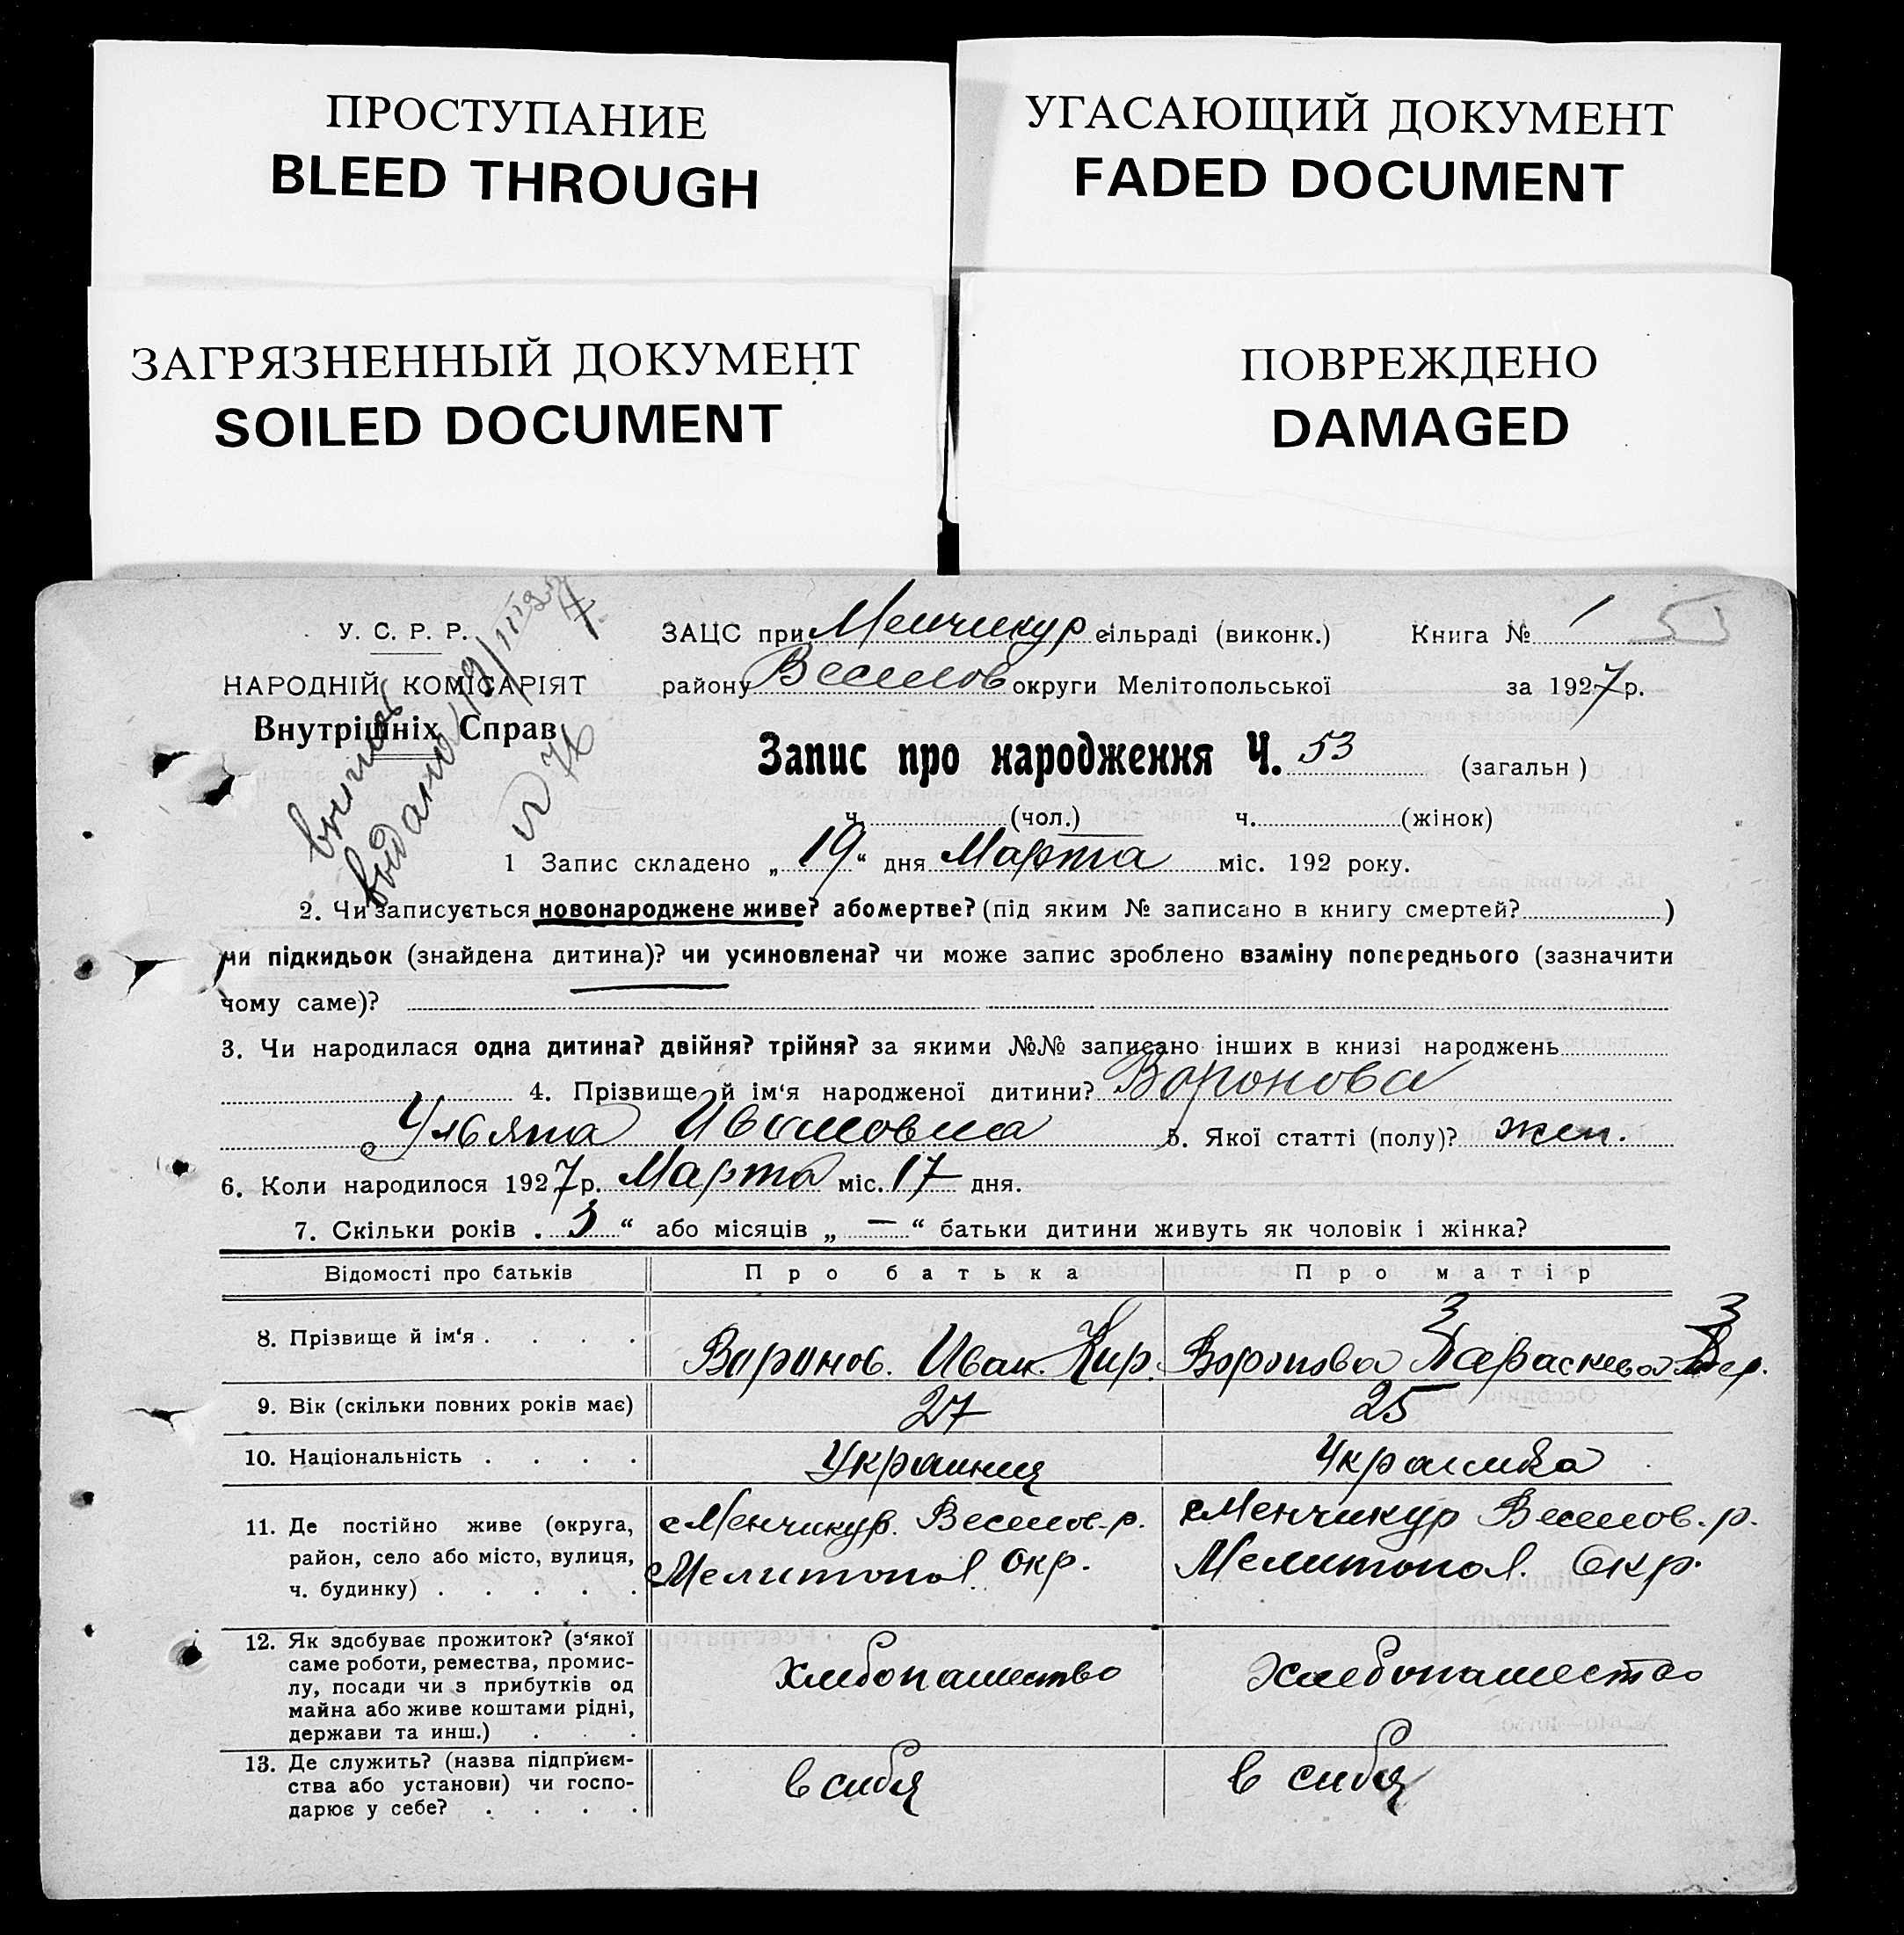 ПРОСТУПАНИЕ
BLEED THROUGH
УГАСАЮЩИЙ ДОКУМЕНТ
FADED DOCUMENT
ЗАГРЯЗНЕННЫЙ ДОКУМЕНТ
SOILED DOCUMENT
ПОВРЕЖДЕНО
DAMAGED
У. С. Р. Р.
НАРОДНІЙ КОМІСАРІЯТ
Внутрішніх Справ
выдана 19/III 1927
№ 76
ЗАЦС при Менчикур сільраді (виконк.) Книга № 1 53
району Веселов округи Мелітопольської за 1927 р.
Запис про народження Ч. 53 (загальн)
ч. (чол.) ч. (жінок)
1 Запис складено „ 19 “ дня Марта міс. 192 року.
2. Чи записується новонароджене живе? або мертве? (під яким № записано в книгу смертей? )
чи підкидьок (знайдена дитина)? чи усиновлена? чи може запис зроблено взаміну попереднього (зазначити
чому саме)?
3. Чи народилася одна дитина? двійня? трійня? за якими №№ записано інших в книзі народжень
4. Прізвище й ім‘я народженої дитини? Воронова
Ульяна Ивановна 5. Якої статті (полу)? жен.
6. Коли народилося 1927 р. Марта міс. 17 дня.
7. Скільки років „ 3 “ або місяців „ — “ батьки дитини живуть як чоловік і жінка?
Відомості про батьків Про батька Про матір
8. Прізвище й ім‘я . . . . Воронов. Иван. Кир. Воронова Параскева
9. Вік (скільки повних років має) 27 25
10. Національність . . . . Украинец Украинка
11. Де постійно живе (округа, район, село або місто, вулиця, ч. будинку) . . . . .
с Менчикур. Веселов. р. Мелитопол. Окр.
с Менчикур Веселов. р. Мелитопол. Окр.
12. Як здобуває прожиток? (з‘якої
саме роботи, ремества, промис-
лу, посади чи з прибутків од
майна або живе коштами рідні,
держави та инш.) . . .
Хлебопашество Хлебопашество
13. Де служить? (назва підприєм-
ства або установи) чи госпо-
дарює у себе? . . . .
в сибя в сибя